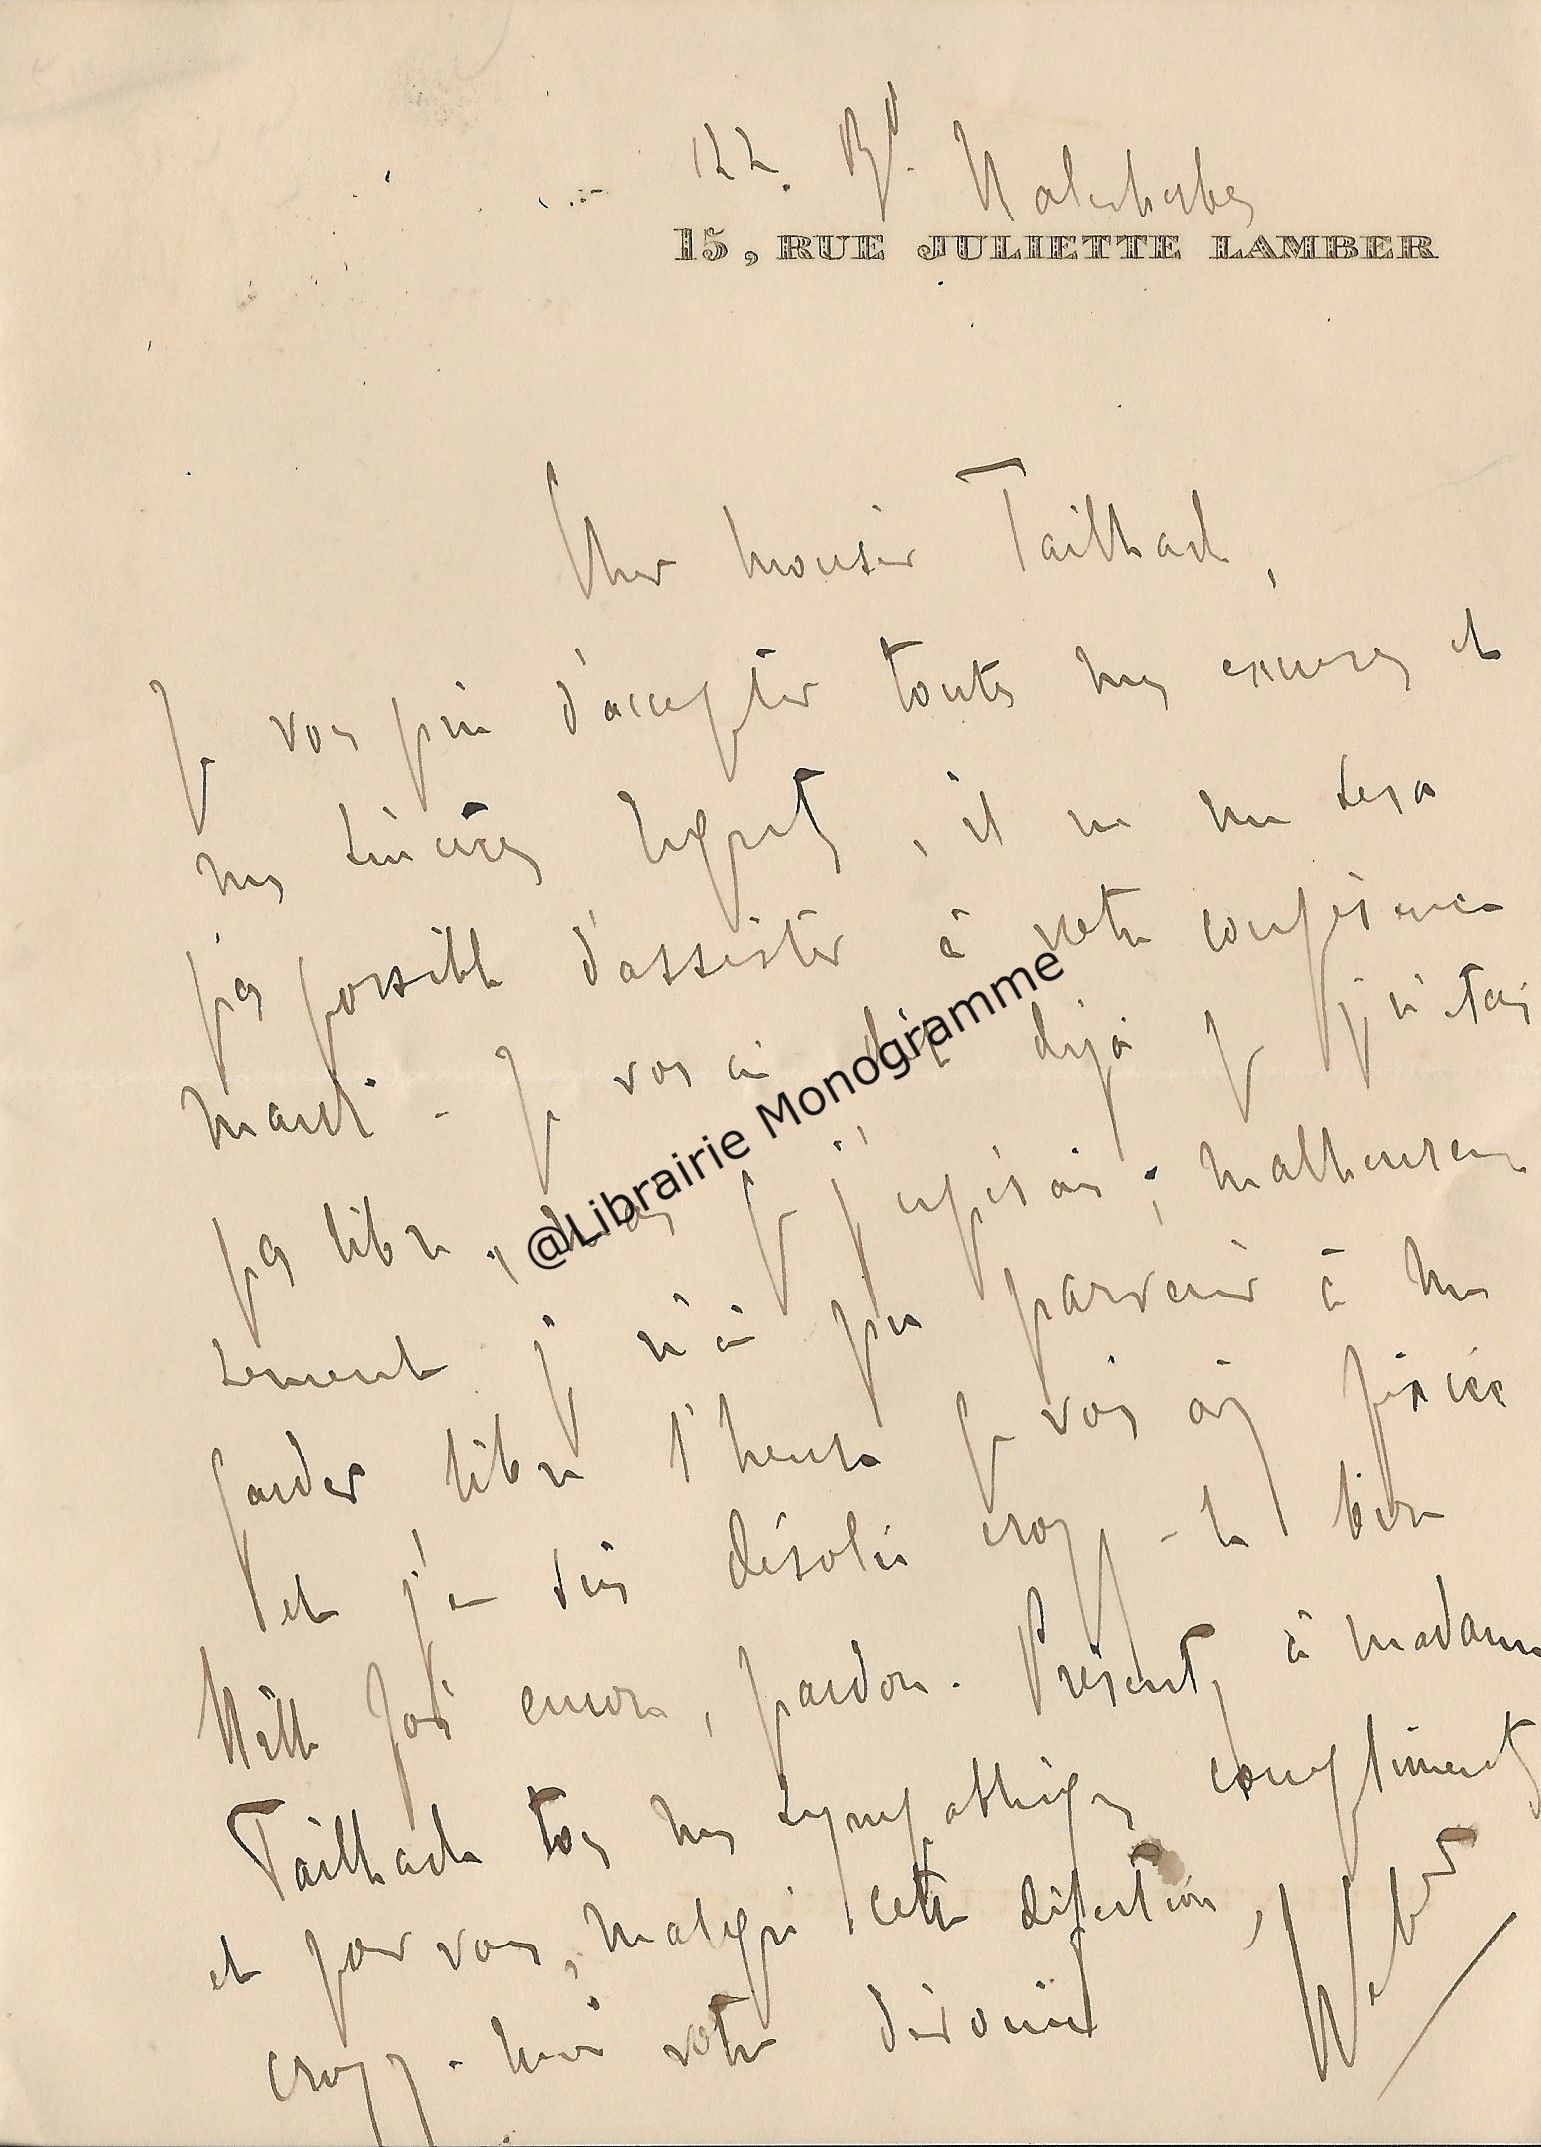 122. Bd. Malesherbes
15, RUE JULIETTE LAMBER
Cher monsieur Tailhade,
Je vous prie d'accepter toutes mes excuses et
mes sincères regrets, il ne me sera
pas possible d'assister à votre conférence
mardi - Je vous ai dit déjà que je n'étais
pas libre, mais que j'espérais ; malheureu
sement je n'ai pu parvenir à me
garder libre l'heure que vous aviez fixée
et j'en suis désolée croyez-le bien
Mille fois encore, pardon. Présentez à madame
Tailhade tous mes sympathiques compliments
et pour vous, malgré cette défection,
croyez-moi votre dévouée
@Librairie Monogramme